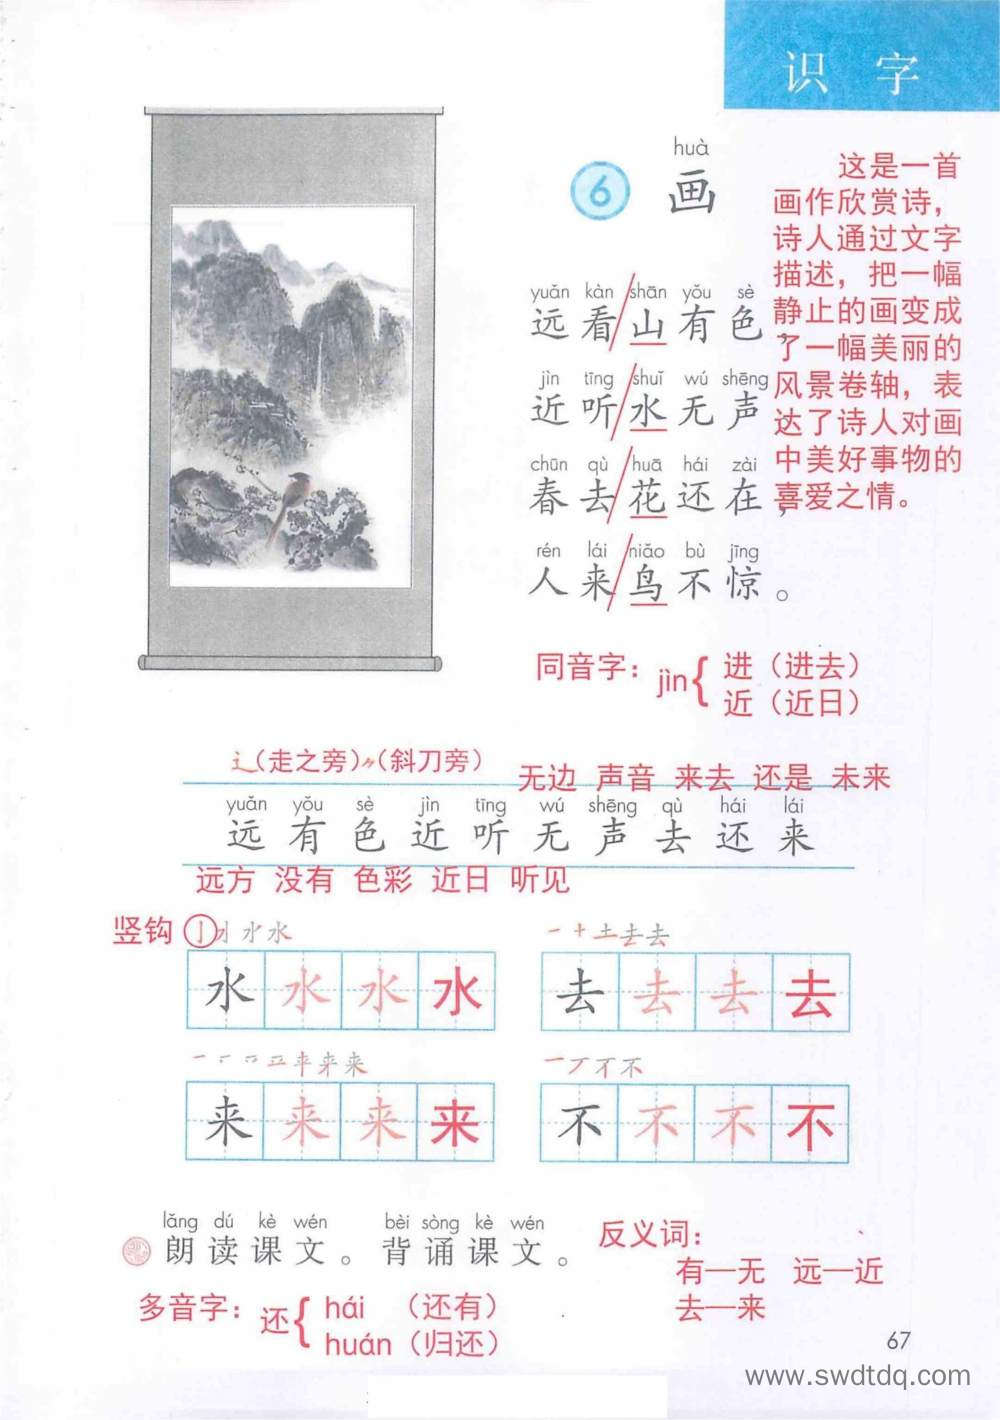 识 字
huà
6 画
yuǎn kàn shān yǒu sè
远看山有色，
jìn tīng shuǐ wú shēng
近听水无声
chūn qù huā hái zài
春去花还在，
rén lái niǎo bù jīng
人来鸟不惊。
这是一首
画作欣赏诗，
诗人通过文字
描述，把一幅
静止的画变成
了一幅美丽的
风景卷轴，表
达了诗人对画
中美好事物的
喜爱之情。
同音字：jìn{ 进（进去）
近（近日）
辶（走之旁）〃（斜刀旁）
无边 声音 来去 还是 未来
yuǎn yǒu sè jìn tīng wú shēng qù hái lái
远 有 色 近 听 无 声 去 还 来
远方 没有 色彩 近日 听见
竖钩 亅 水 水
水 水 水 水
一 十 土 去 去
去 去 去 去
来 来 来
来 来 来 来
一 丆 不 不
不 不 不 不
lǎng dú kè wén bèi sòng kè wén
朗读课文。背诵课文。
反义词：
有—无 远—近
去—来
多音字：还{ hái （还有）
huán（归还）
67
www.swdtdq.com